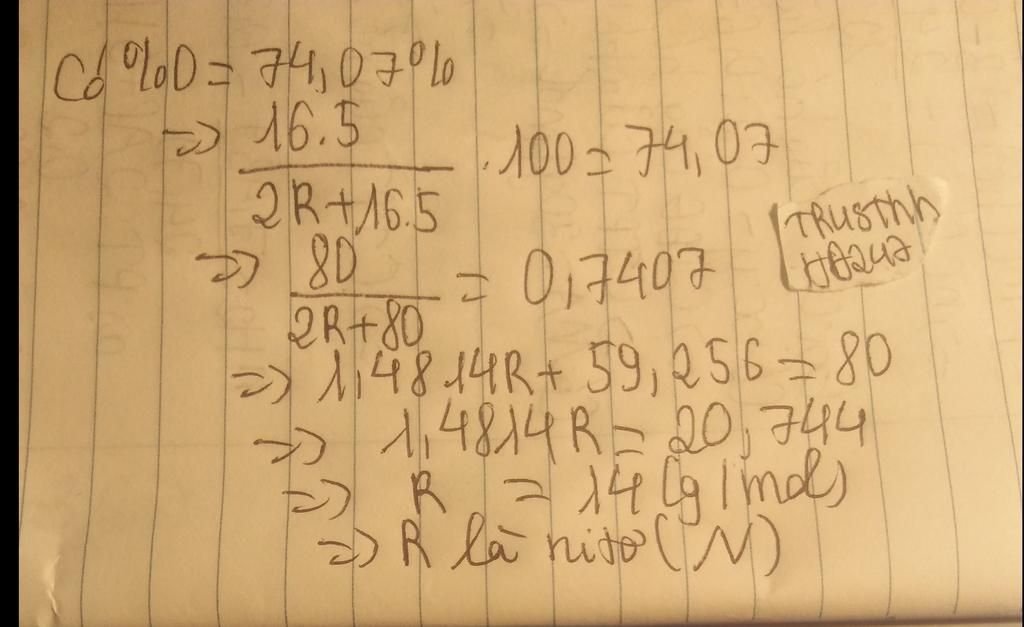 Có %O = 74,07%
=> 16.5 / 2R+16.5 .100 = 74,07
=> 80 / 2R+80 = 0,7407
=> 1,4814R + 59,256 = 80
=> 1,4814R = 20,744
=> R = 14 (g/mol)
=> R là nitơ (N)